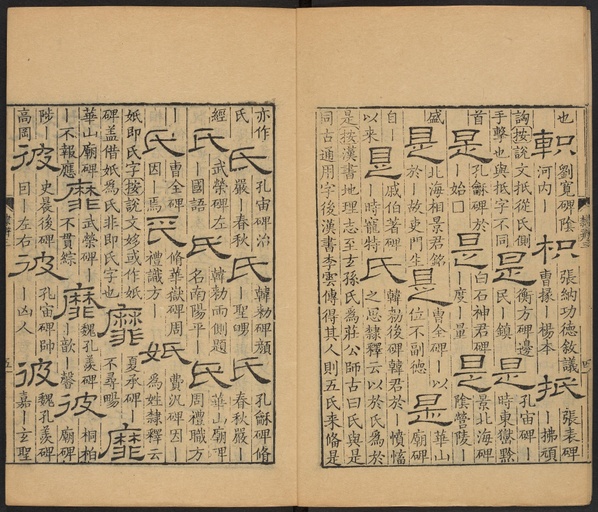 也
軹 劉寬碑陰河內丨 枳 張納功德敘議曹掾丨楊本 抵 張表碑丨拂頑
訽按說文抵從氏側手擊也與抵字不同 是 衡方碑邊民丨鎮 是 孔宙碑丨時東嶽黔
首 是 孔龢碑於丨始囗 是 白石神君碑丨度丨量 是 景北海碑陰營陵丨
是 北海相景君銘於丨故吏門生 是 曹全碑丨以位不副德 是 華山廟碑
自丨以來 是 戚伯著碑丨時寵特 氏 韓勑後碑韓君於氏憤愾之思隸釋云以於氏為於
是按漢書地理志至玄孫氏為莊公師古曰氏與是
同古通用字後漢書李雲傳得其人則五氏來備是
亦作氏 氏 孔宙碑治嚴丨春秋 氏 韓勑碑顏丨聖 氏 孔龢碑脩春秋嚴丨
經 氏 武榮碑左丨國語 氏 韓勑兩側題名南陽平丨 氏 華山廟碑周禮職方
丨 氏 曹全碑因丨焉 氏 脩華嶽碑周禮識方丨 妷 費汎碑因丨為姓隸釋云
妷即氏字按說文妷或作妷
碑蓋借妷為氏非即氏字也 靡 夏承碑丨不尋暢 靡 桐柏
華山廟碑丨不報應 靡 武榮碑丨不貫綜 靡 魏孔羨碑丨歆丨馨 彼 桐柏廟碑
陟丨高岡 彼 史晨後碑囙丨左右 彼 孔宙碑師丨凶人 彼 魏孔羨碑嘉丨玄聖